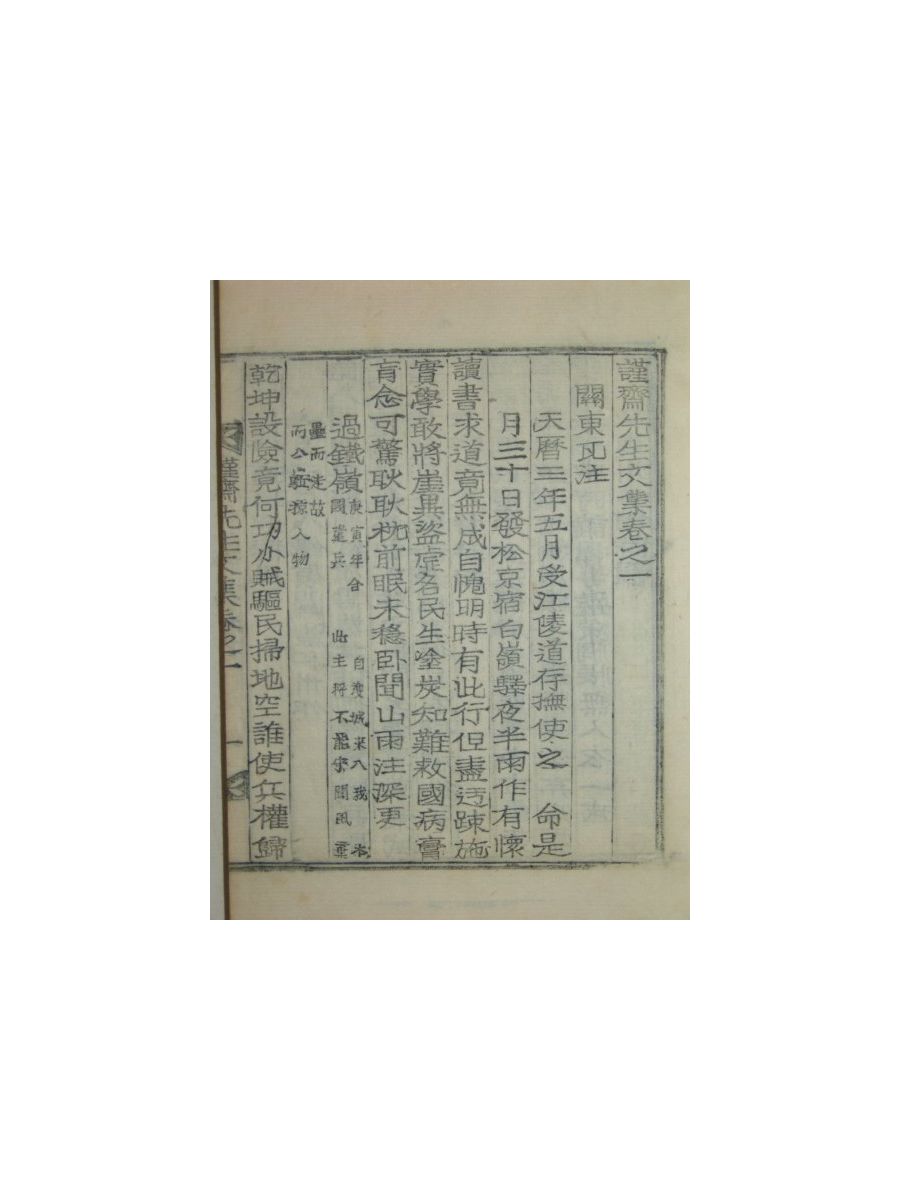 謹齋先生文集卷之一
關東瓦注
天曆三年五月受江陵道存撫使之 命是
月三十日發松京宿白嶺驛夜半雨作有懷
讀書求道竟無成自愧明時有此行但盡迃踈施
實學敢將崖異盜虛名民生塗炭知難救國病膏
肓念可驚耿耿枕前眠未穩卧聞山雨注深更
過鐵嶺
庚寅年合 自雙城來入我 本
國重兵 此主將不能守聞風棄
壘而走故
而公驅掠人物
乾坤設險竟何功小賊驅民掃地空誰使兵權歸
謹齋先生文集卷之一 一